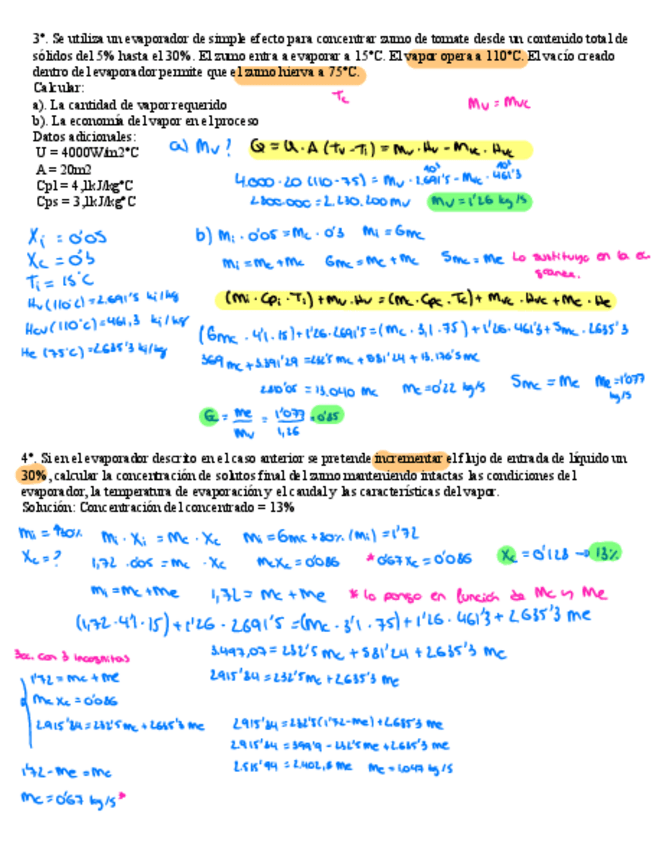 3*. Se utiliza un evaporador de simple efecto para concentrar zumo de tomate desde un contenido total de
sólidos del 5% hasta el 30%. El zumo entra a evaporar a 15°C. El vapor opera a 110°C. El vacío creado
dentro del evaporador permite que el zumo hierva a 75°C.
Tc
Calcular:
a). La cantidad de vapor requerido
Mv = Mvc
b). La economía del vapor en el proceso
Datos adicionales:
U = 4000W/m2*C
A = 20m2
Cp1 = 4,1kJ/kg*C
Cps = 3,1kJ/kg*C
a) Mv? Q = U · A (Tv - Ti) = mv · Hv - Mvc · Hvc
4.000 · 20 (110 - 75) = Mv · 2.691'5 - Mvc · 461'3
10³ 10³
2.800.000 = 2.230.200 mv Mv = 1'26 kg/s
Xi = 0'05
Xc = 0'3
Ti = 15°C
Hv (110°C) = 2.691'5 kj/kg
Hcv (110°C) = 461,3 kj/kg
He (75°C) = 2.635'3 kj/kg
b) mi · 0'05 = Mc · 0'3 mi = 6mc
mi = mc + me 6mc = mc + me 5mc = me Lo sustituyo en la ec
(mi · Cpi · Ti) + mv · Hv = (mc · Cpc · Tc) + Mvc · Hvc + me · He
(6mc · 4'1 · 15) + 1'26 · 2691'5 = (mc · 3,1 · 75) + 1'26 · 461'3 + 5mc · 2635'3
369 mc + 3.391'29 = 232'5 mc + 581'24 + 13.176'5 mc
2810'05 = 13.040 mc mc = 0'22 kg/s 5mc = me me = 1'077 kg/s
G = me/mv = 1'077/1,26 = 0'85
4*. Si en el evaporador descrito en el caso anterior se pretende incrementar el flujo de entrada de líquido un
30%, calcular la concentración de solutos final del zumo manteniendo intactas las condiciones del
evaporador, la temperatura de evaporación y el caudal y las características del vapor.
Solución: Concentración del concentrado = 13%
mi · Xi = mc · Xc mi = 6mc + 30% (mi) = 1'72
Xc = ? 1,72 · 0.05 = mc · Xc mcXc = 0'086 *0'67 Xc = 0'086 Xc = 0'128 → 13%
mi = mc + me 1,72 = mc + me * lo pongo en función de mc y me
(1,72 · 4'1 · 15) + 1'26 · 2691'5 = (mc · 3'1 · 75) + 1'26 · 461'3 + 2635'3 me
3ec. con 3 incognitas
3.497,07 = 232'5 mc + 581'24 + 2635'3 mc
2915'84 = 232'5 mc + 2635'3 me
1'72 = mc + me
mc Xc = 0'086
2.915'84 = 232'5 mc + 2635'3 me
2915'84 = 232'5 (1'72 - me) + 2.635'3 me
2.915'84 = 399'9 - 232'5 me + 2.635'3 me
2.515'94 = 2.402,8 me me = 1,047 kg/s
1'72 - me = mc
mc = 0'67 kg/s *